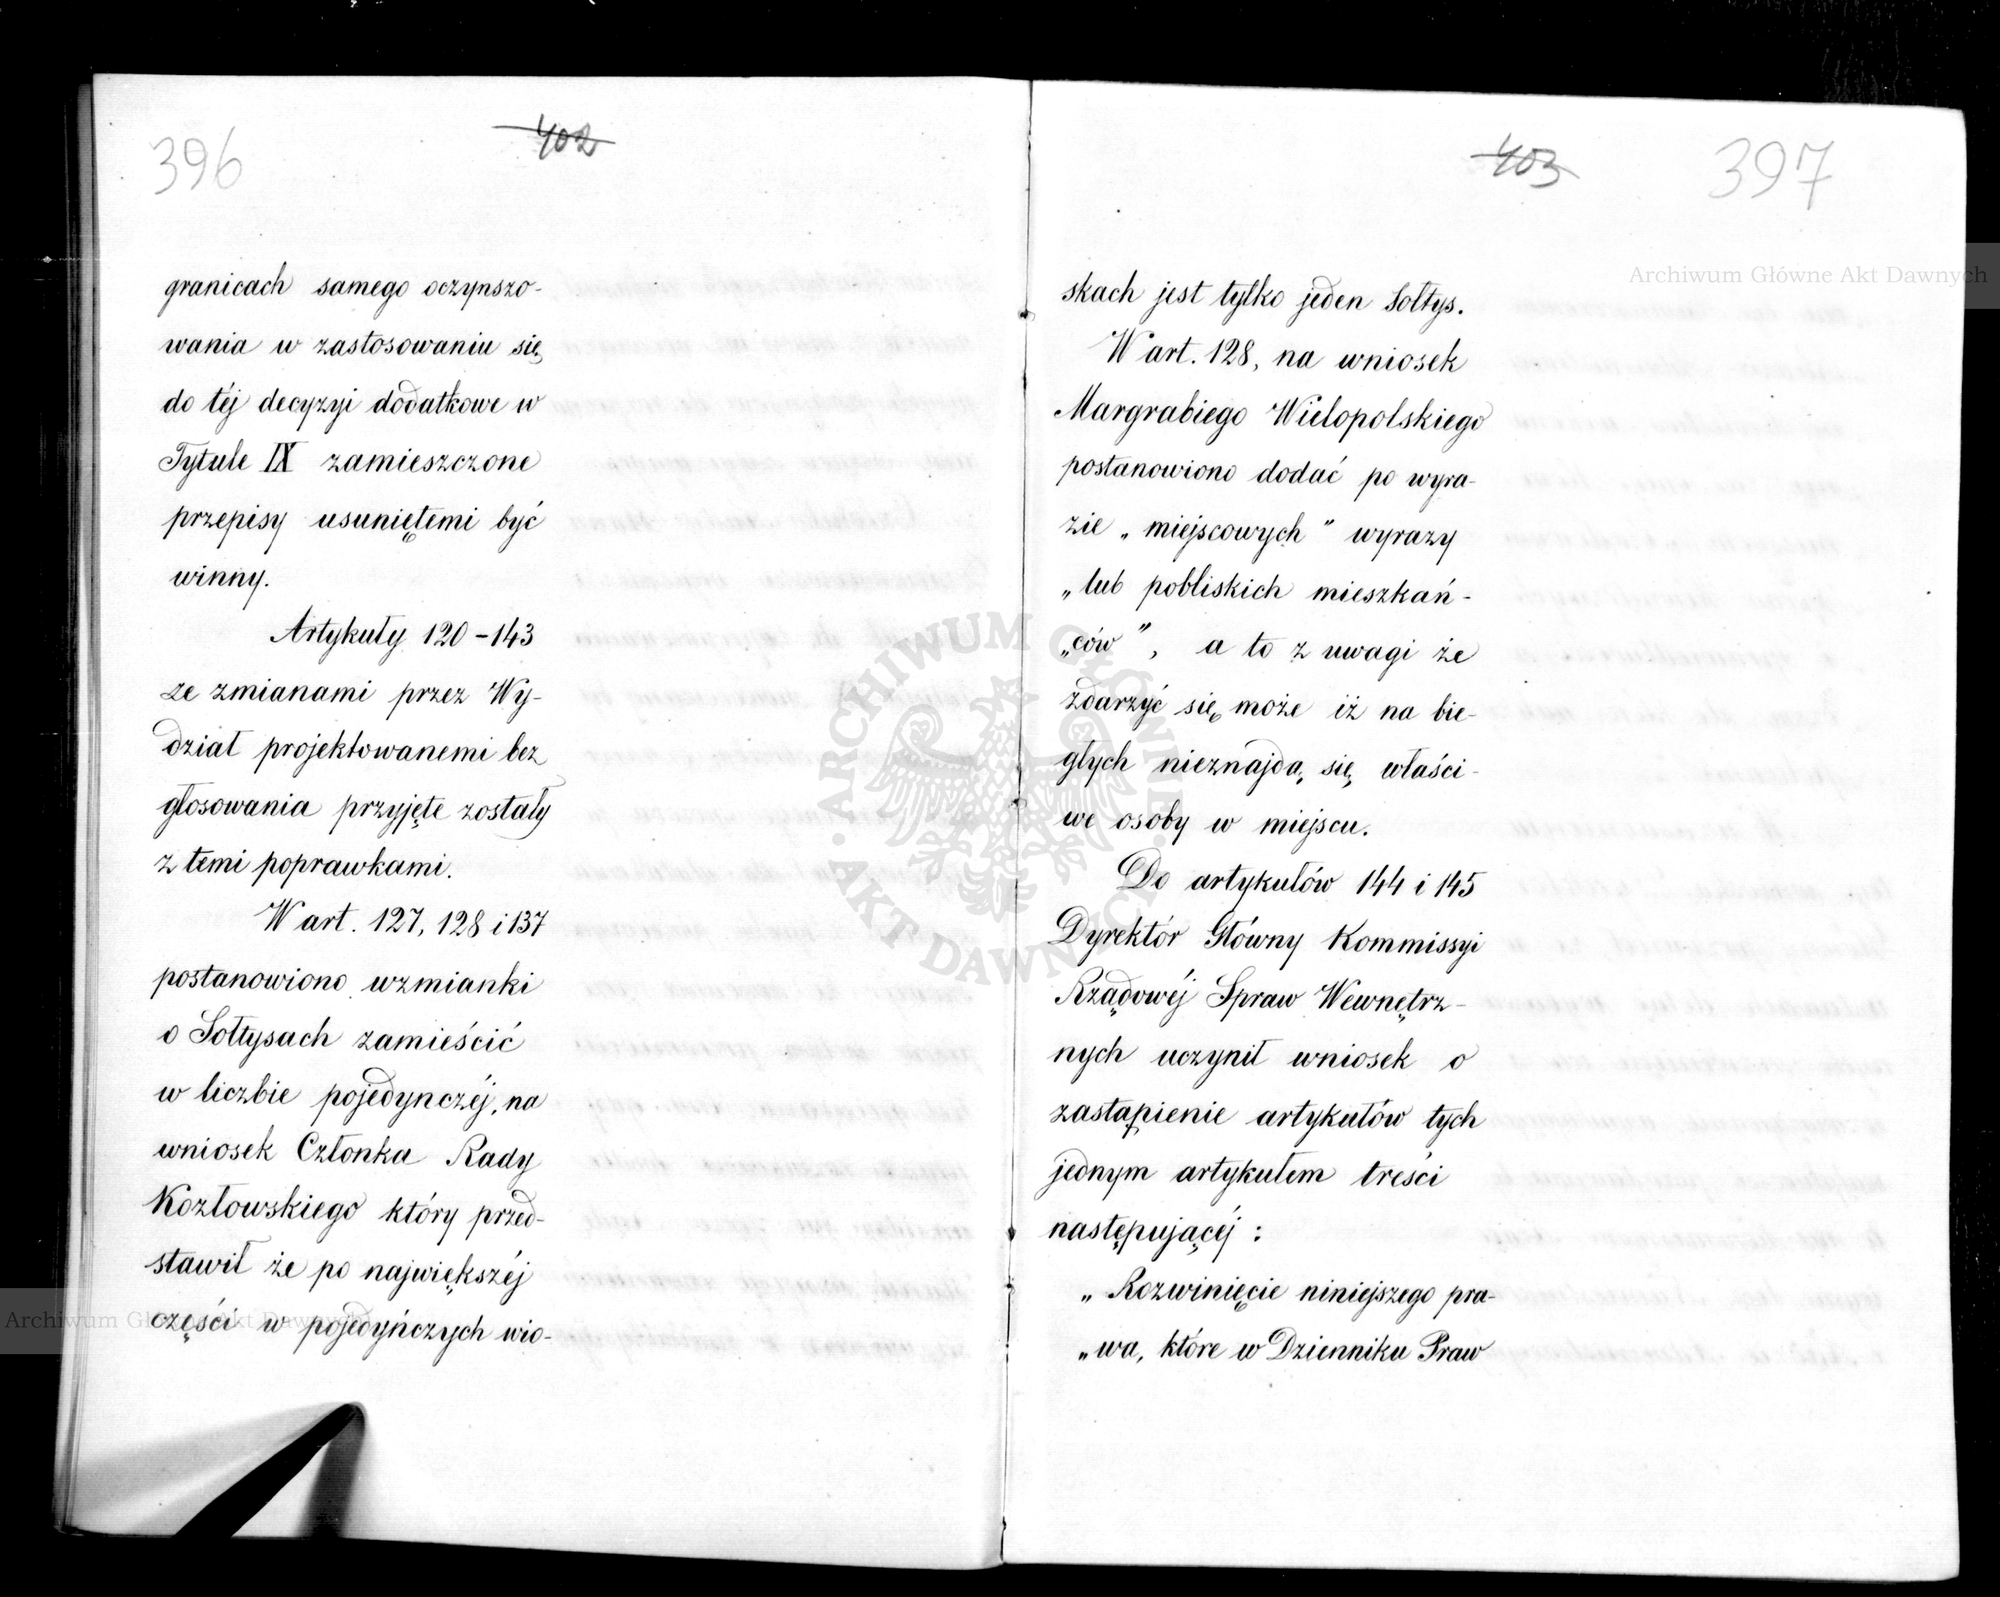 396
402
granicach samego oczynszo-
wania w zastosowaniu się
do téj decyzyi dodatkowe w
Tytule IX zamieszczone
przepisy usuniętemi być
winny.
Artykuły 120-143
ze zmianami przez Wy-
dział projektowanemi bez
głosowania przyjęte zostały
z temi poprawkami.
W art. 127, 128 i 137
postanowiono wzmianki
o Sołtysach zamieścić
w liczbie pojedynczéj, na
wniosek Członka Rady
Kozłowskiego który przed-
stawił że po największéj
części w pojedyńczych wio-
403
397
skach jest tylko jeden Sołtys.
W art. 128, na wniosek
Margrabiego Wielopolskiego
postanowiono dodać po wyra-
zie „miejscowych" wyrazy
„lub pobliskich mieszkań-
„ców", a to z uwagi że
zdarzyć się może iż na bie-
głych nieznajdą się właści-
we osoby w miejscu.
Do artykułów 144 i 145
Dyrektór Główny Kommissyi
Rządowéj Spraw Wewnętrz-
nych uczynił wniosek o
zastąpienie artykułów tych
jednym artykułem treści
następującéj:
„Rozwinięcie niniejszego pra-
„wa, które w Dzienniku Praw
Archiwum Główne Akt Dawnych
Archiwum Główne Akt Dawnych
ARCHIWUM GŁÓWNE AKT DAWNYCH